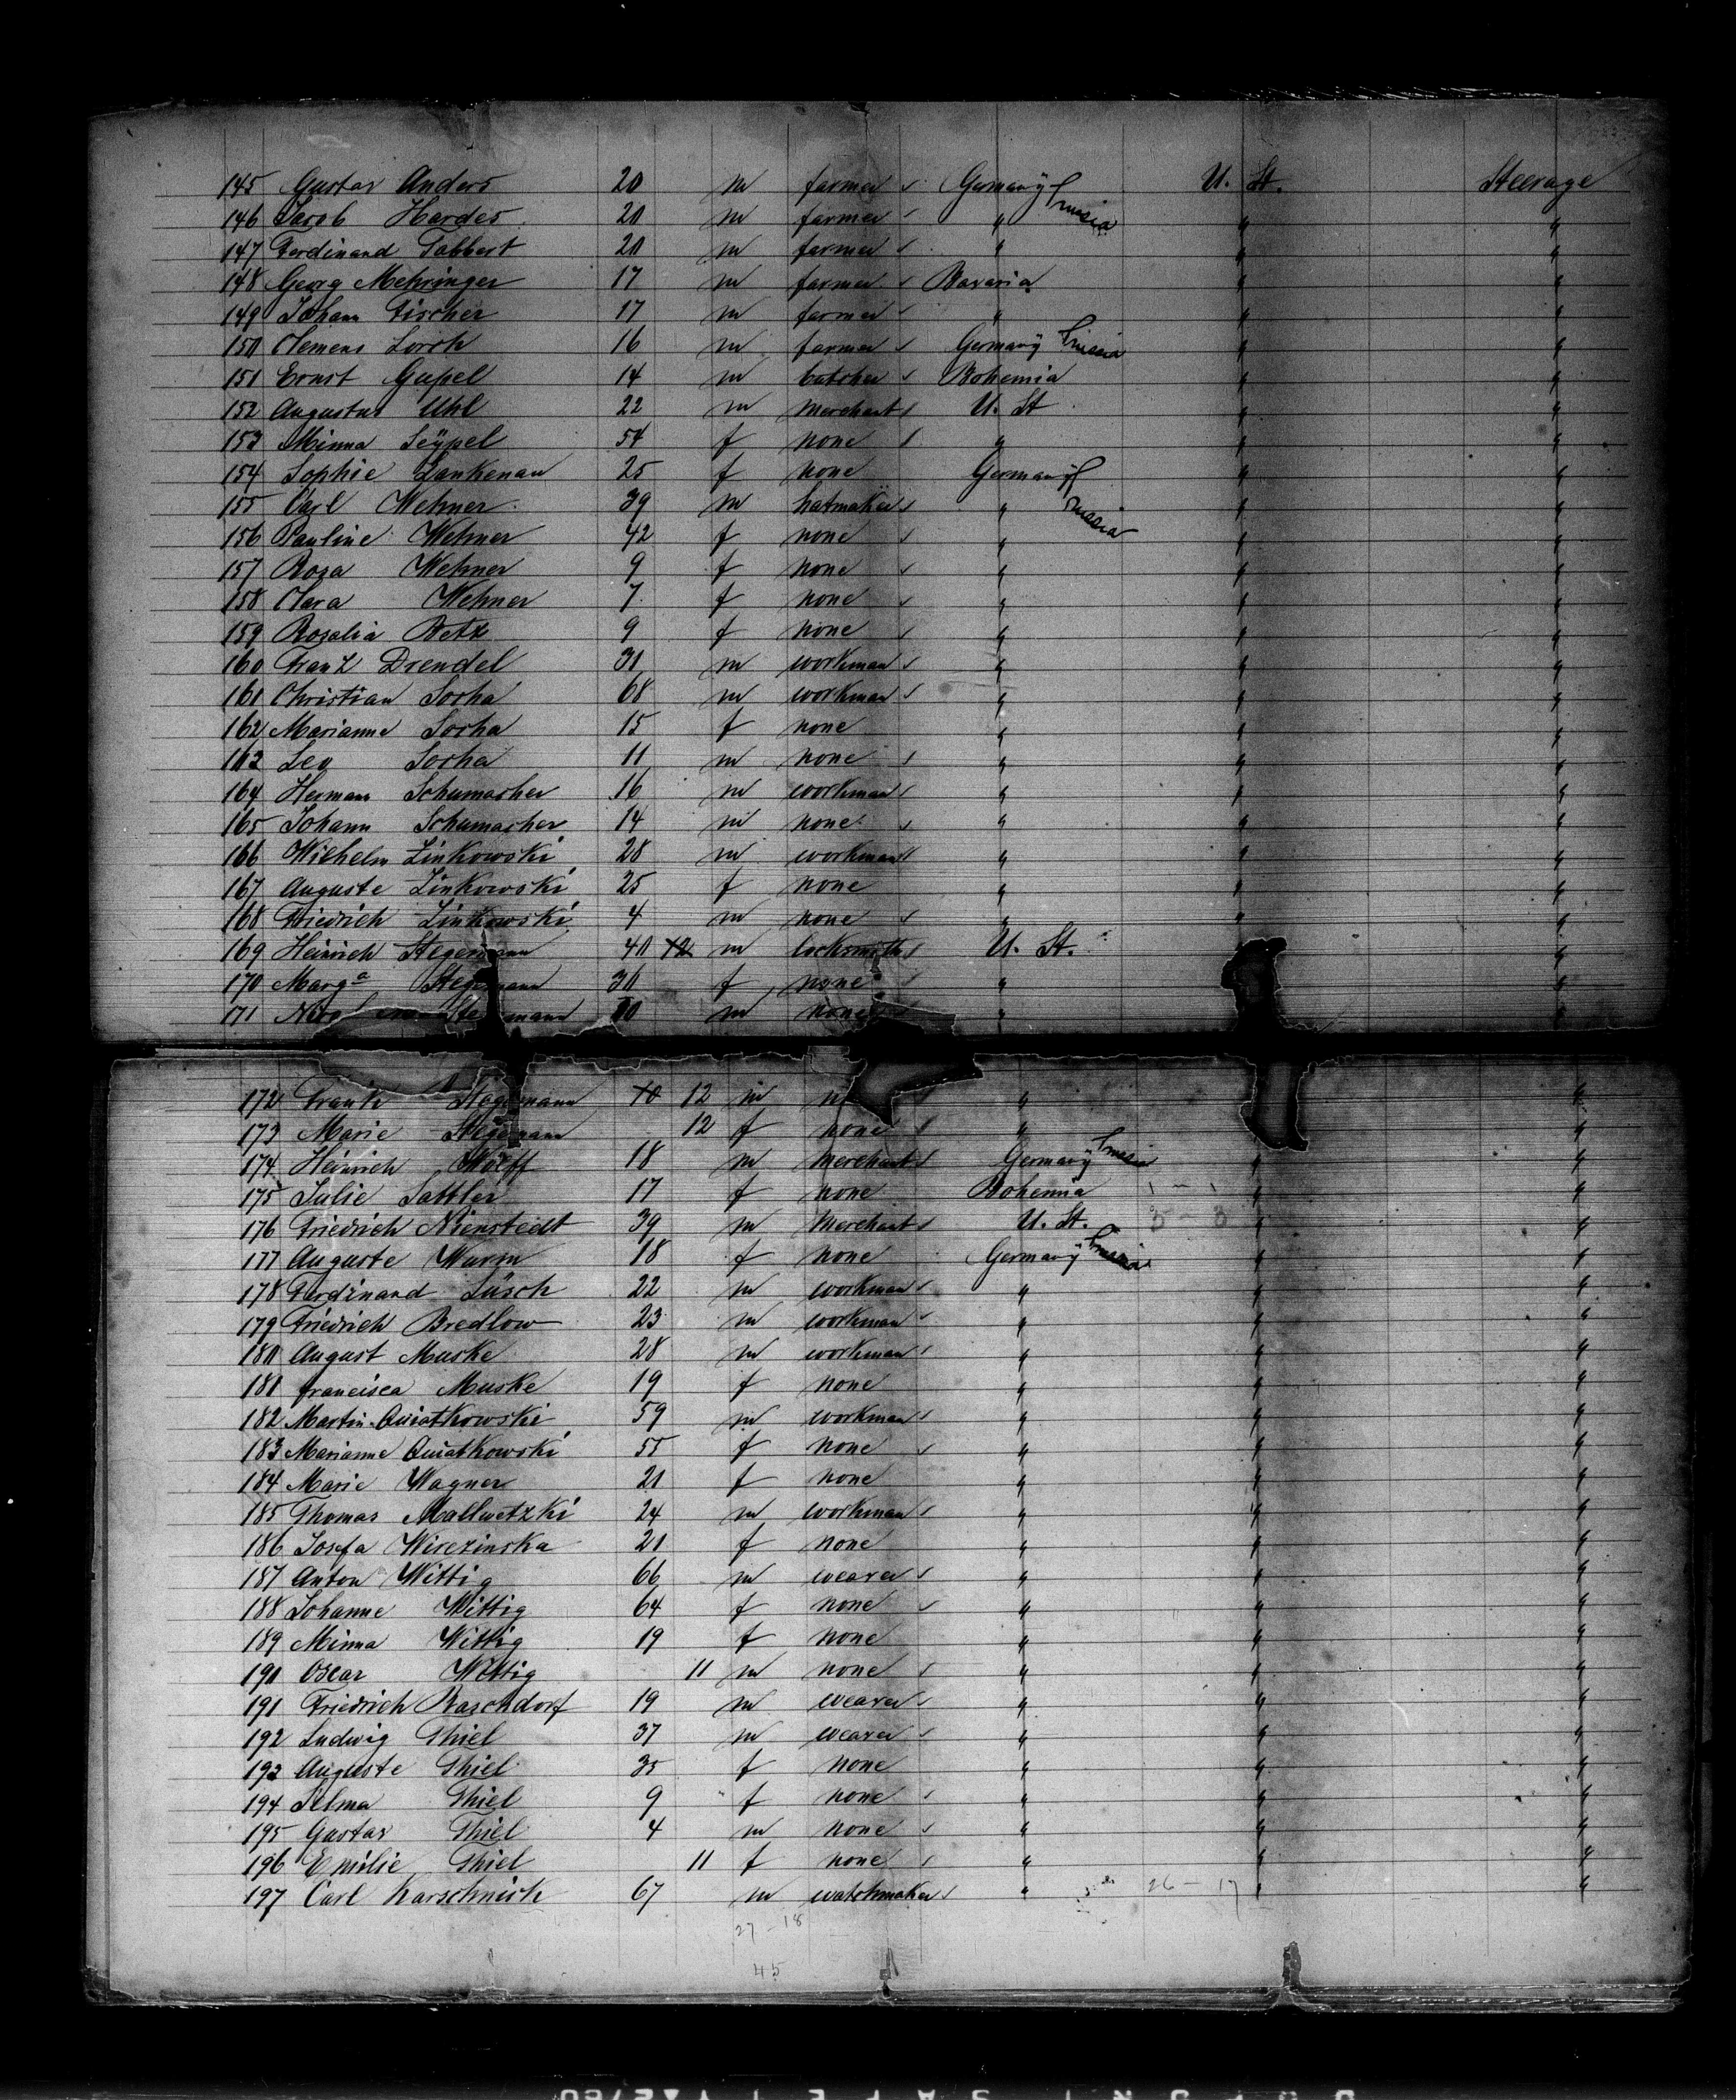 145 Gustav Anders 20 m farmer Germany Prussia U. St. Steerage
146 Jacob Hardes 20 m farmer " " "
147 Ferdinand Tabbert 20 m farmer " " "
148 Georg Mehringer 17 m farmer Bavaria " "
149 Johann Fischer 17 m farmer " " "
150 Clemens Lorch 16 m farmer Germany Prussia " "
151 Ernst Gupel 14 m butcher Bohemia " "
152 Augustus Uhl 22 m merchant U. St " "
153 Minna Seÿpel 54 f none " " "
154 Sophie Lankenau 25 f none Germany Prussia " "
155 Carl Wehner 39 m hatmaker " " "
156 Pauline Wehner 42 f none " " "
157 Rosa Wehner 9 f none " " "
158 Clara Wehner 7 f none " " "
159 Rosalia Betz 9 f none " " "
160 Franz Drendel 31 m workman " " "
161 Christian Socha 68 m workman " " "
162 Marianne Socha 15 f none " " "
163 Leo Socha 11 m none " " "
164 Herman Schumacher 16 m workman " " "
165 Johann Schumacher 14 m none " " "
166 Wilhelm Linkowski 28 m workman " " "
167 Auguste Linkowski 25 f none " " "
168 Friedrich Linkowski 4 m none " " "
169 Heinrich Stegemann 40 m locksmith U. St. " "
170 Marga Stegemann 30 f none " "
171 Stegemann m none " "
172 Frank Stegemann 10 12 m " "
173 Marie Stegemann 12 f none " "
174 Heinrich Wolff 18 m merchant Germany Prussia " "
175 Julie Sattler 17 f none Bohemia 1 - 1 " "
176 Friedrich Nienstedt 39 m merchant U. St. 5 - 3 " "
177 Auguste Wurm 18 f none Germany Prussia " "
178 Ferdinand Lüsch 22 m workman " " "
179 Friedrich Bredlow 23 m workman " " "
180 August Muske 28 m workman " " "
181 Francisca Muske 19 f none " " "
182 Martin Quiatkowski 59 m workman " " "
183 Marianne Quiatkowski 55 f none " " "
184 Marie Wagner 21 f none " " "
185 Thomas Mallwetzki 24 m workman " " "
186 Josefa Wirezinska 21 f none " " "
187 Anton Wittig 66 m weaver " " "
188 Johanne Wittig 64 f none " " "
189 Minna Wittig 19 f none " " "
190 Oscar Wittig 11 m none " " "
191 Friedrich Baschdorf 19 m weaver " " "
192 Ludwig Thiel 37 m weaver " " "
193 Auguste Thiel 35 f none " " "
194 Selma Thiel 9 f none " " "
195 Gustav Thiel 4 m none " " "
196 Emilie Thiel 11 f none " " "
197 Carl Karschnick 67 m watchmaker " 26 - 17 " "
27 - 18
45